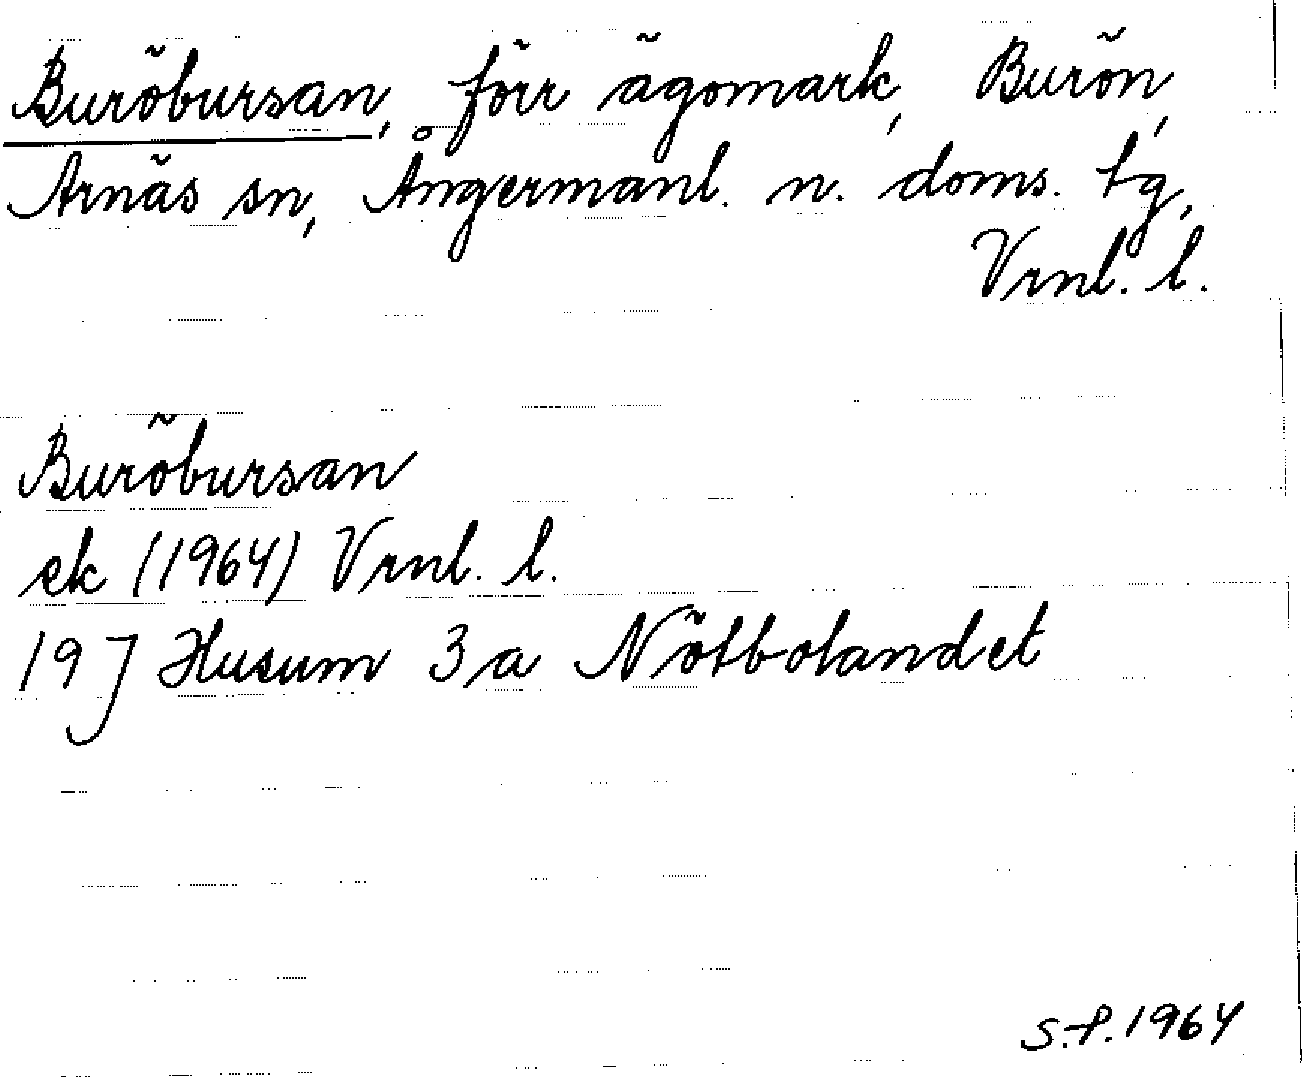 Buröbursan, förr ägomark, Burön,
Arnäs sn, Ångermanl. n. doms. tg,
Vrnl. l.
Buröbursan
ek (1964) Vrnl. l.
19J Husum 3a Nötbolandet
S.P. 1964